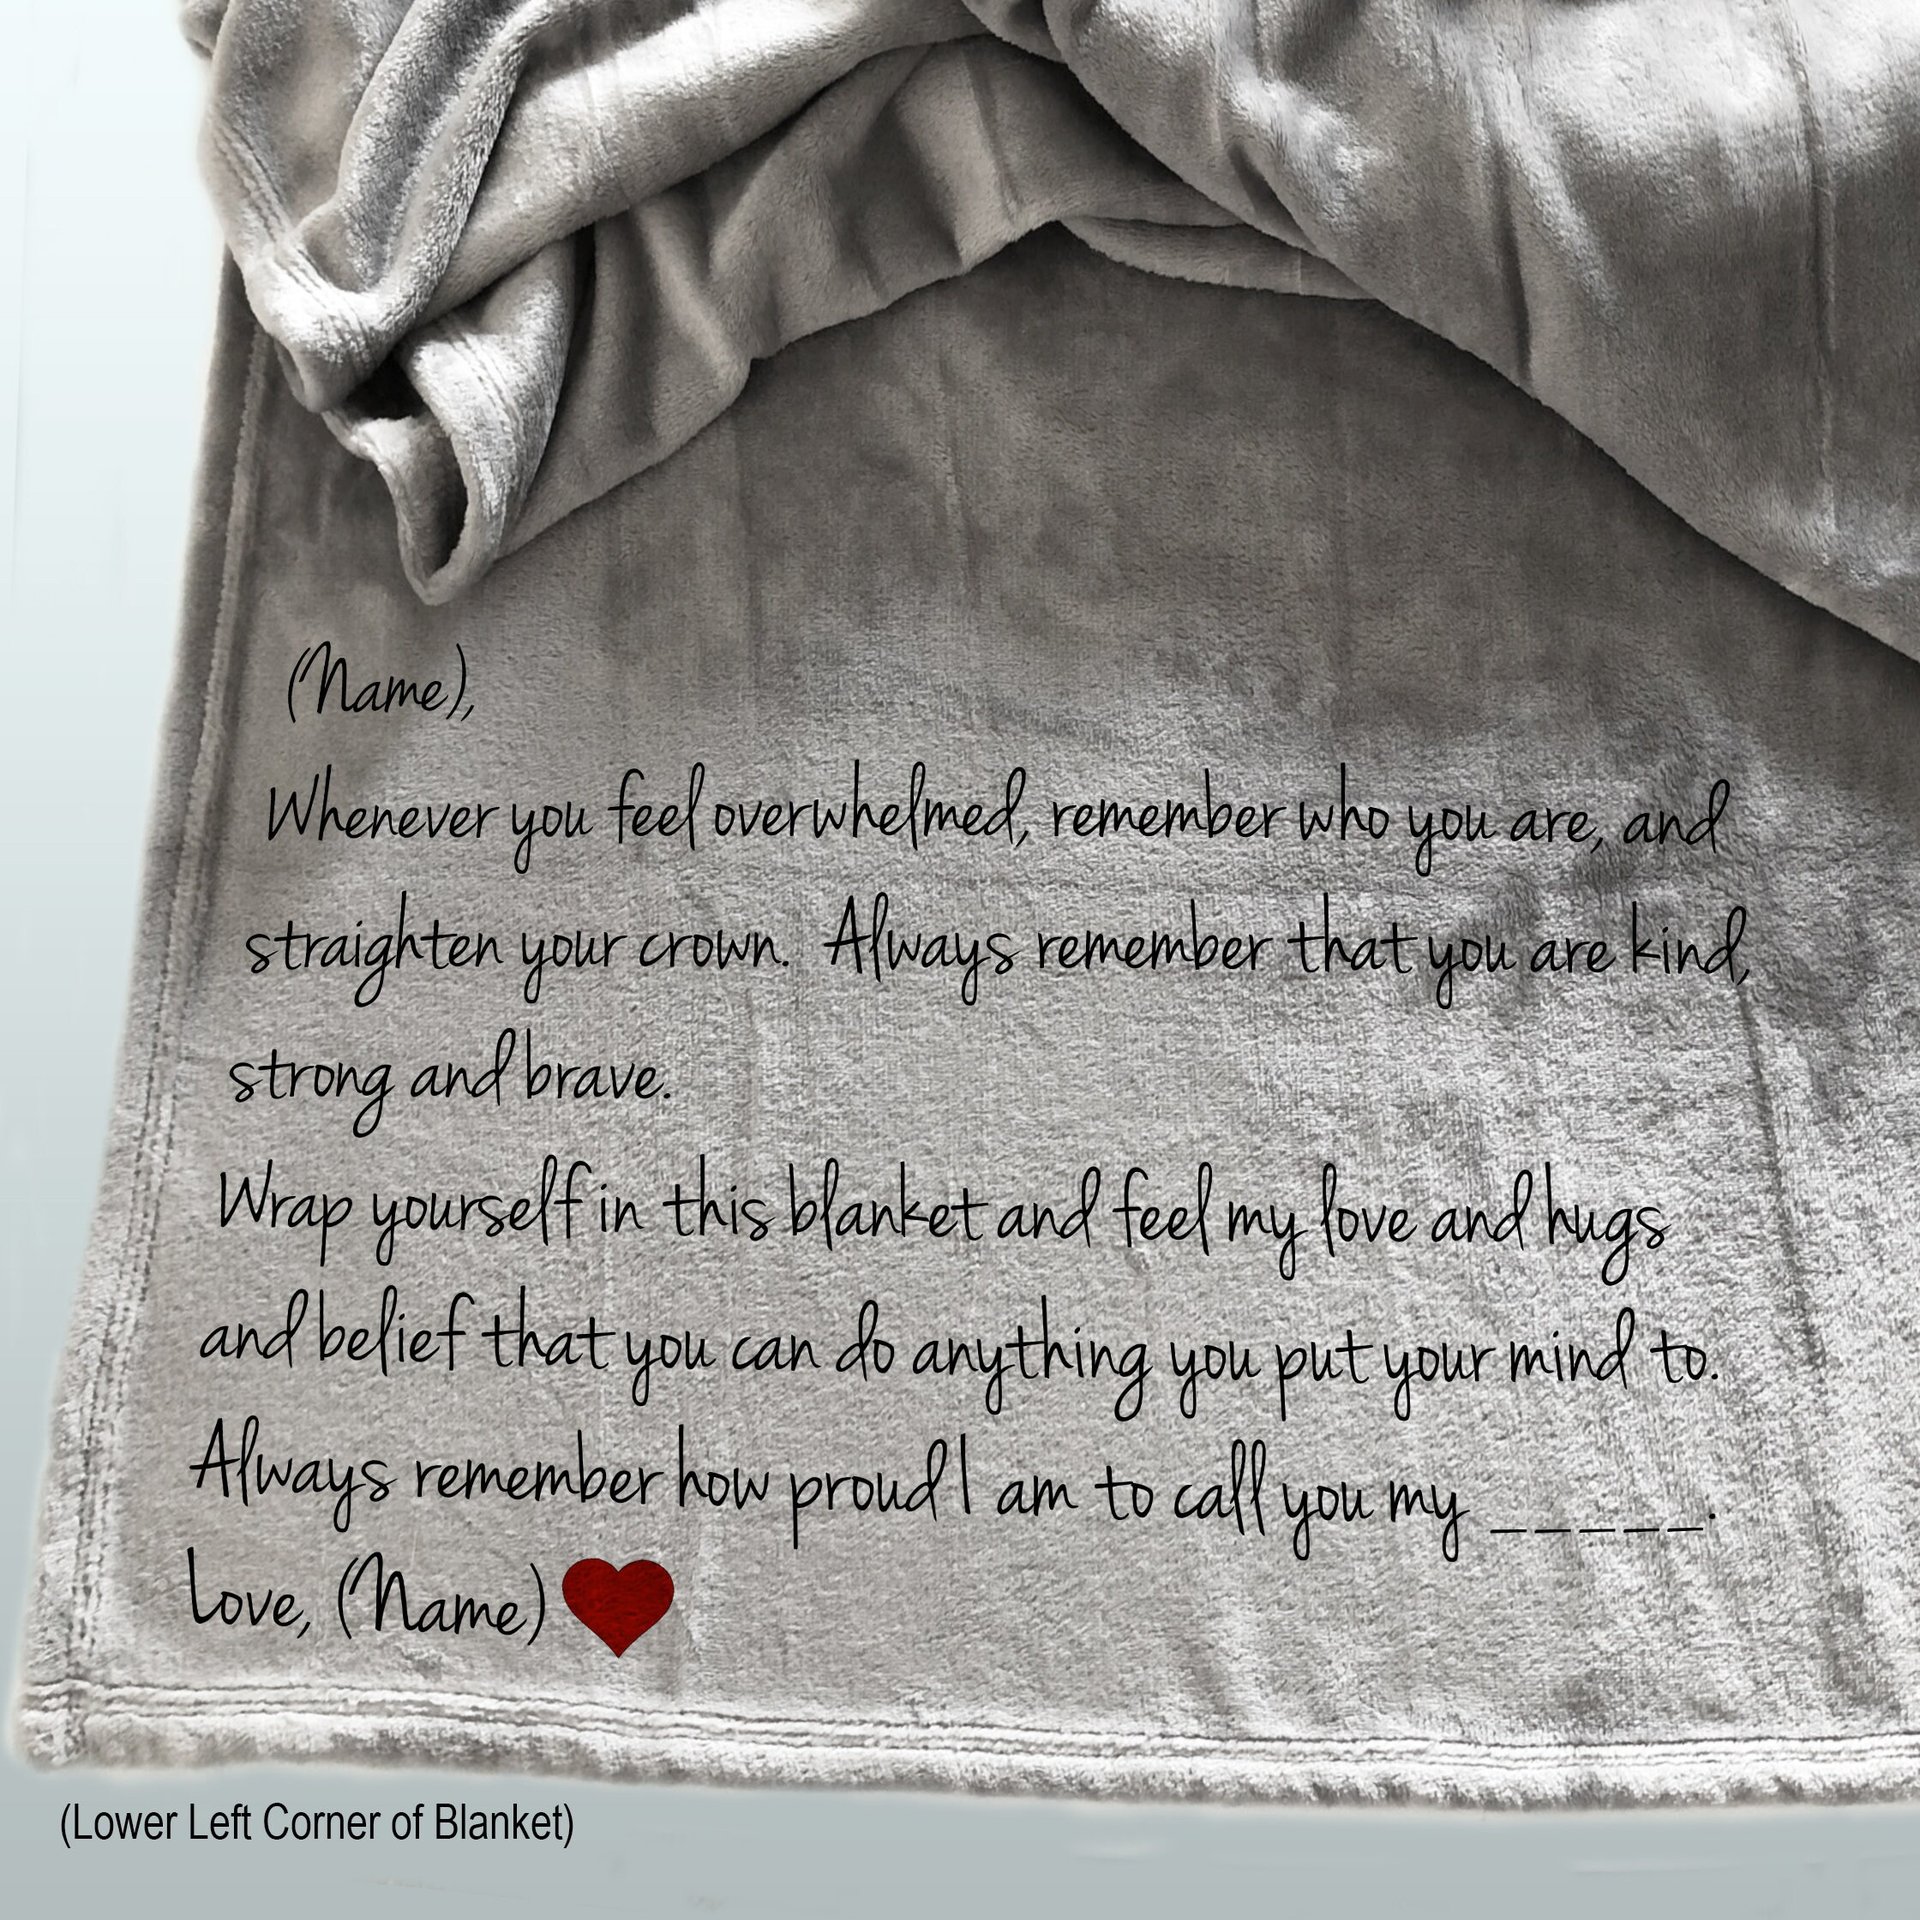 (Name),
Whenever you feel overwhelmed, remember who you are, and
straighten your crown. Always remember that you are kind,
strong and brave.
Wrap yourself in this blanket and feel my love and hugs
and belief that you can do anything you put your mind to.
Always remember how proud I am to call you my _____.
Love, (Name)
(Lower Left Corner of Blanket)